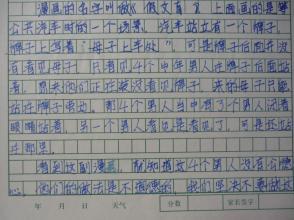 漫画的名字叫做《假文盲》上面画的是等
公共汽车时的一个场景。汽车站立有一个牌子,
牌子上写着"母子上车处"可是牌子后面并没
有看见母子,只看见4个中年男人站在牌子后
面。原来他们正在装没有见牌子,来的母子只能
站在牌子旁边。那4个男人当中有3个男人闭着
眼睛站着,另一个男人看也是看见了,可是还站
在那里。
看到这副漫画,我知道这4个男人没有公德
心。他们的做法是不对的。我们坚决不要做这
年 月 日 天气 分数 家长签字